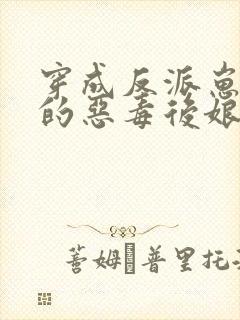 穿成反派崽
的惡毒後娘
蓍姆‧普里托